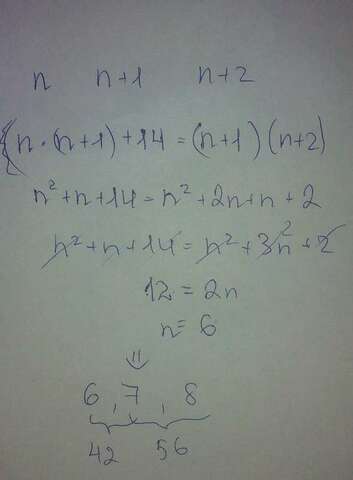 n n+1 n+2
{n·(n+1)+14=(n+1)(n+2)
n²+n+14=n²+2n+n+2
n²+n+14=n²+3n²+2
12=2n
n=6
⇓
6, 7, 8
42 56